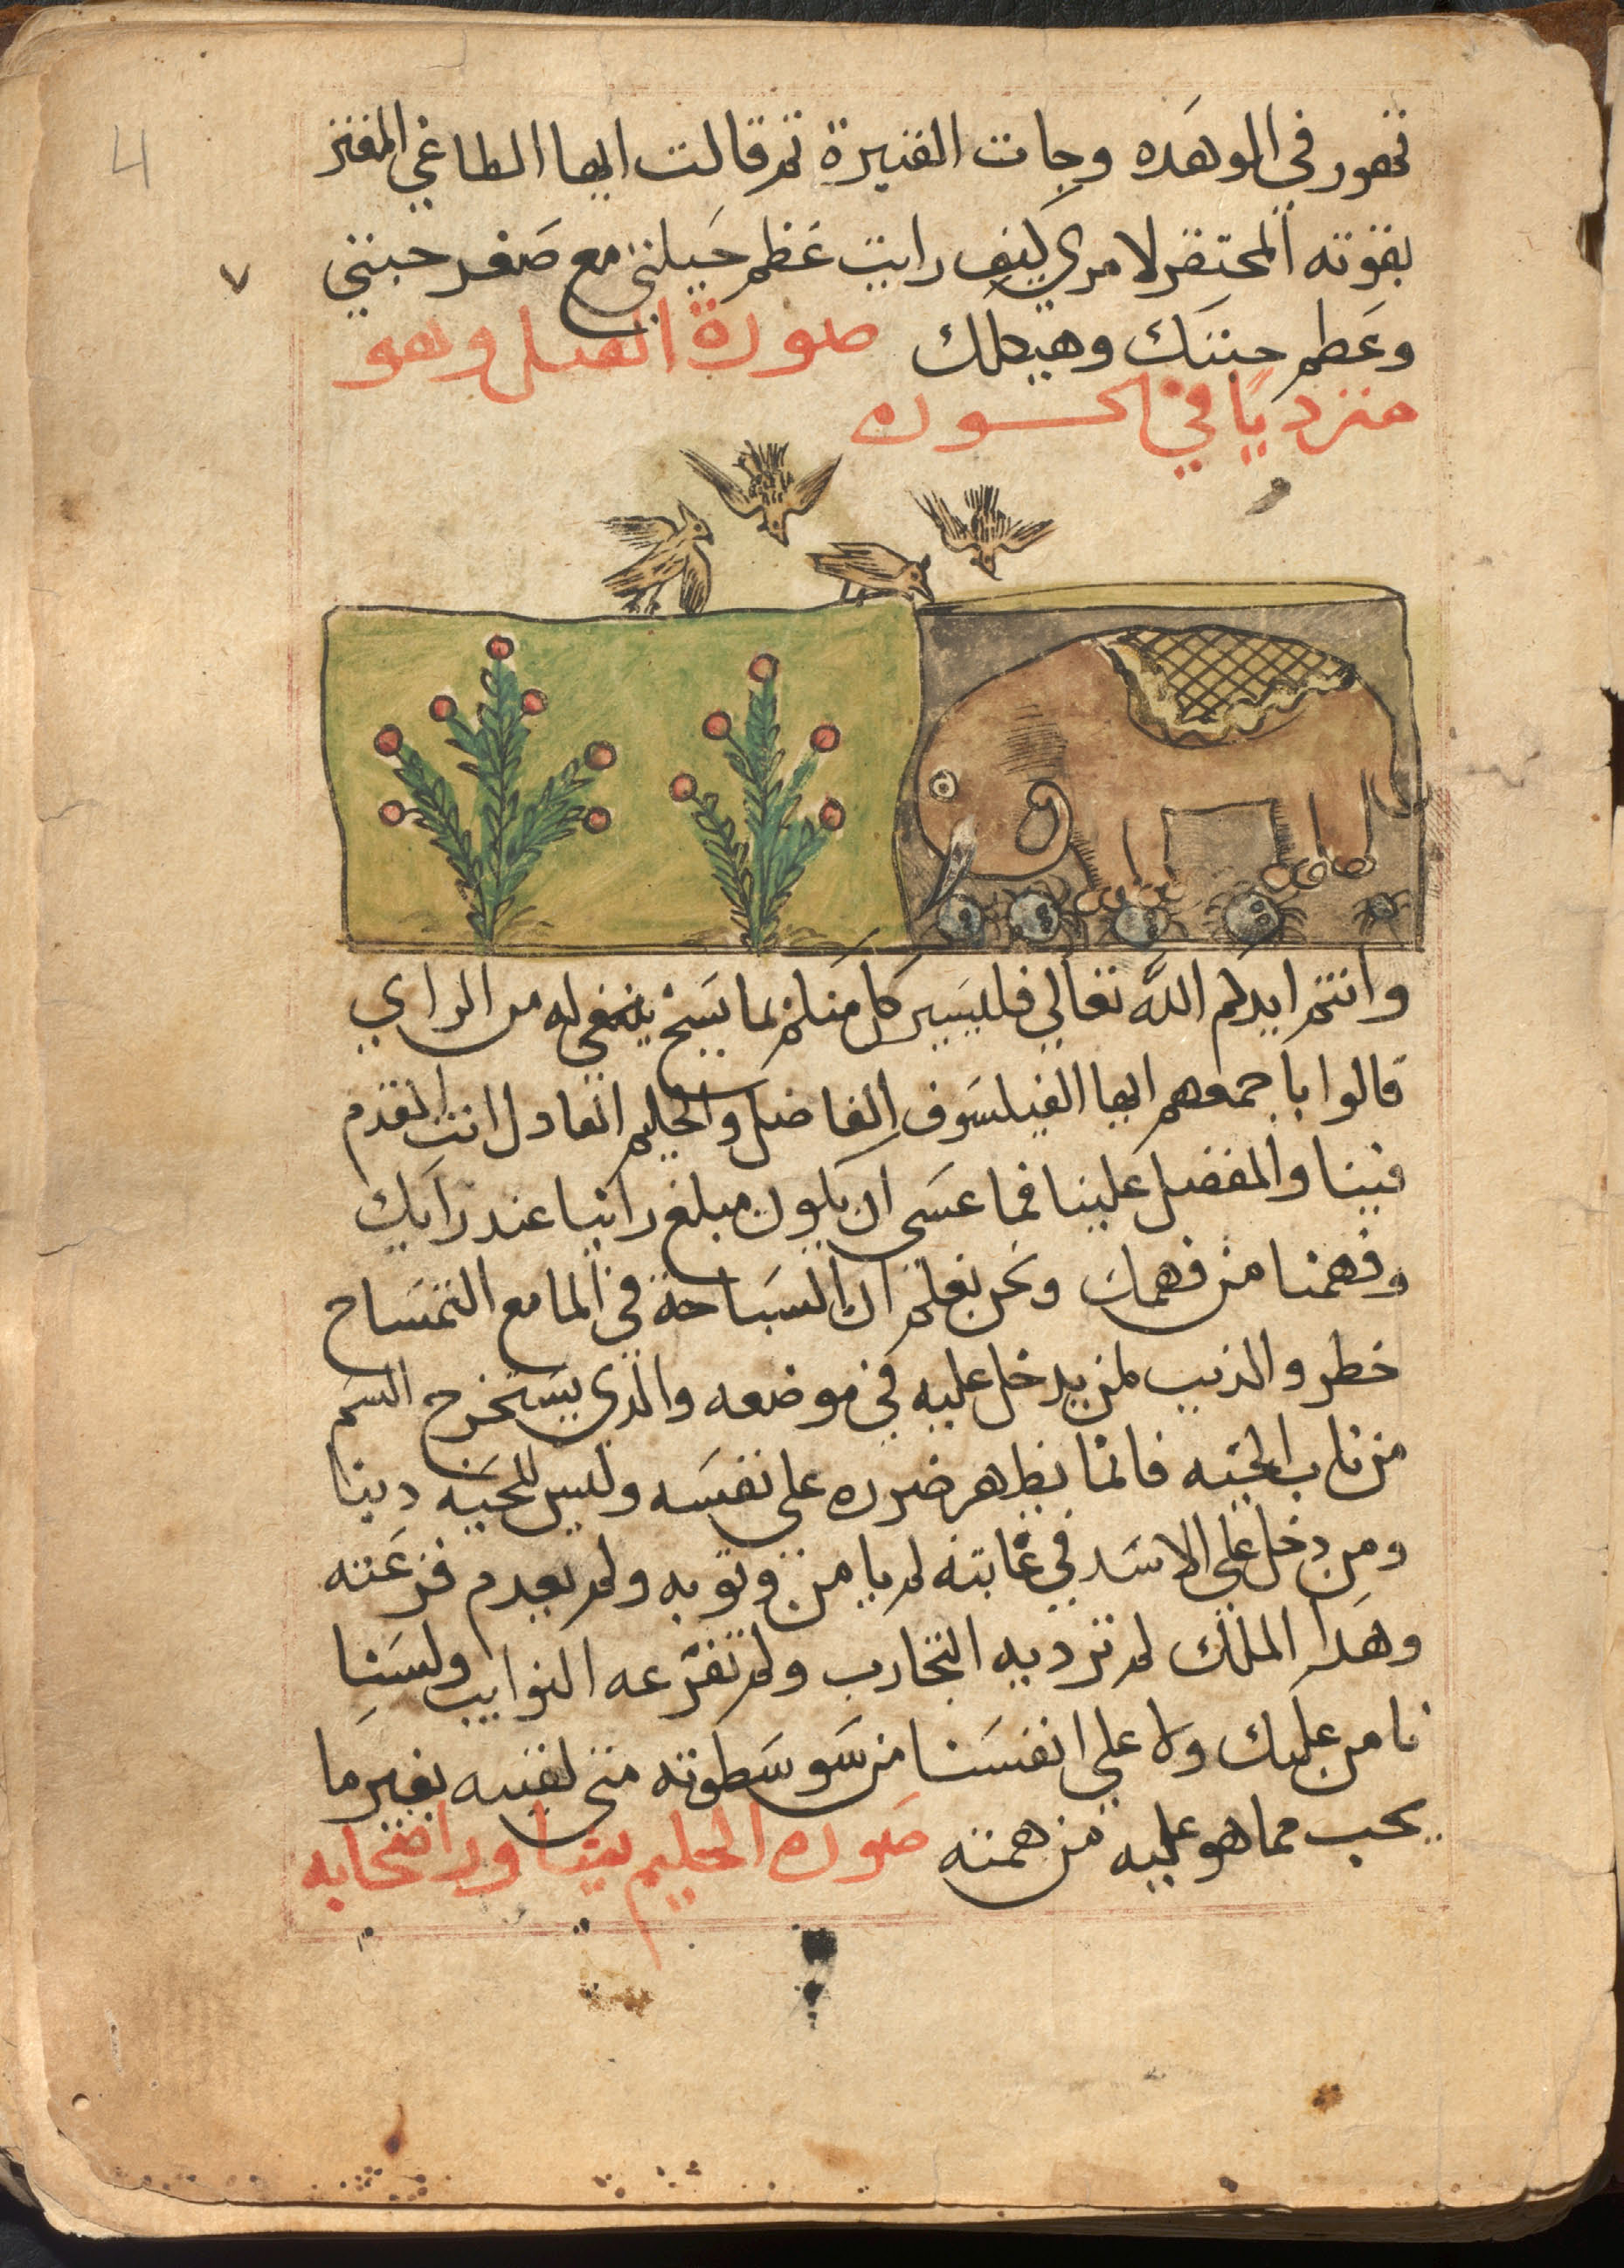 تهور في الوهَده وجات القنبرة ثم قالت ايها الطاغي المغتر
بقوته المحتقر لامري كيف رايت عَظم حَيلتي مع صَغر جثتي
وعَظم جثتك وهيكلك صورة الفيل وهو
متردياً في الحسوره
وانتم ايدكم الله تعالي فليسَير كل منكم بما يسَنح ينبغي له من الراي
قالوا باجمعهم ايها الفيلسَوف الفاضل والحليم العادل انت المقدم
فينا والمفضل علينا فما عسَي ان يكون مبلغ راينا عند رايك
وفهمنا من فهمك ونحن نعلم ان السبَاحة في الما مع التمسَاح
خطر والذنب لمن يدخل عليه في موضعه والذي يسَتخرج السَم
من ناب الحيّه فانما يظهر ضرره علي نفسَه وليس للحيَه ديناً
ومن دخل علي الاسَد في غابته لم يامن وثوبه ولم يعدم فزعَته
وهذا الملك لم ترديه التجارب ولم تفزعه النوايب ولسَنا
نامن عليك ولا علي انفسَنا من سَو سَطوته متي لقيته بغير ما
يحب مما هو عليه من همته صَوره الحليم بيدبا وراصحابه
4
٧